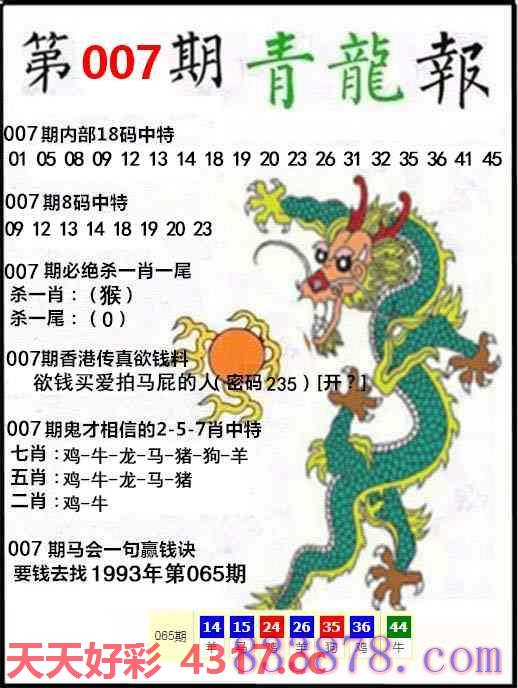 第007期青龍報
007期内部18码中特
01 05 08 09 12 13 14 18 19 20 23 26 31 32 35 36 41 45
007期8码中特
09 12 13 14 18 19 20 23
007 期必绝杀一肖一尾
杀一肖：（猴）
杀一尾：（0）
007期香港传真欲钱料
欲钱买爱拍马屁的人（密码235）[开？]
007期鬼才相信的2-5-7肖中特
七肖：鸡-牛-龙-马-猪-狗-羊
五肖：鸡-牛-龙-马-猪
二肖：鸡-牛
007 期马会一句赢钱诀
要钱去找1993年第065期
065期 14 15 24 26 35 36 44
羊 马 羊 狗 鸡 牛
天天好彩 4317.cc
878.com